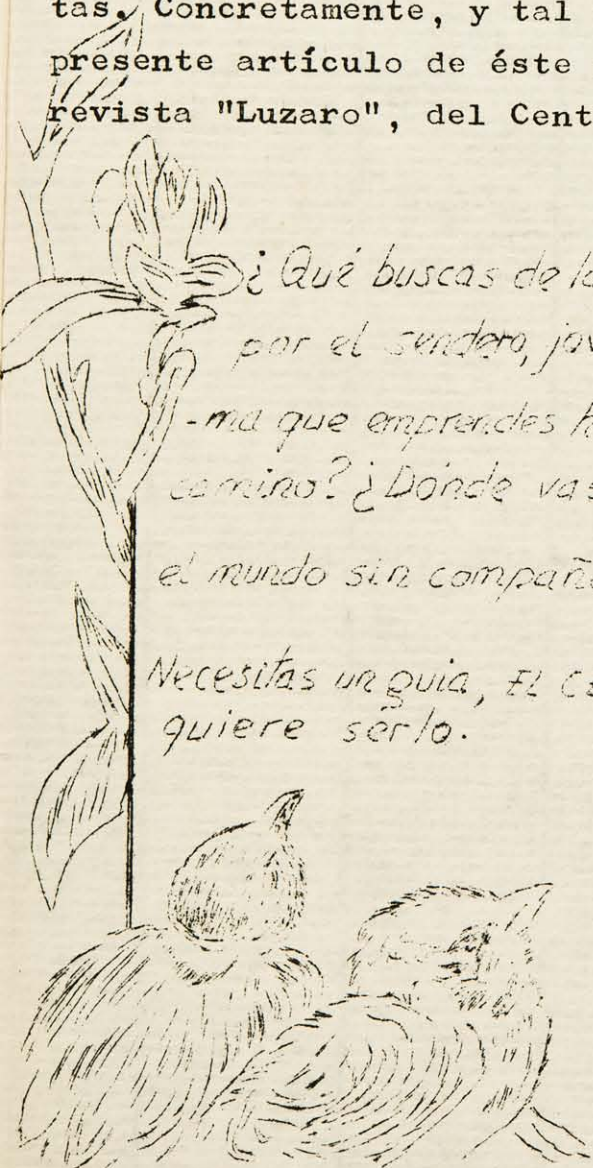 tas. Concretamente, y tal
presente artículo de éste
revista "Luzaro", del Cent
¿Qué buscas de
por el sendero,
-ma que emprendes
camino? ¿Dónde vas
el mundo sin compañ
Necesitas un guia, EL
quiere serlo.